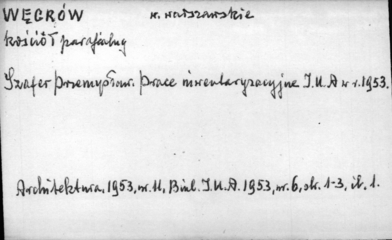 WĘGRÓW w. warszawskie
kościół parafialny
Szafer Przemysław. Prace inwentaryzacyjne I.U.A w r. 1953.
Architektura, 1953, nr. 11, Biul. I.U.A. 1953, nr. 6, str. 1-3, il. 1.